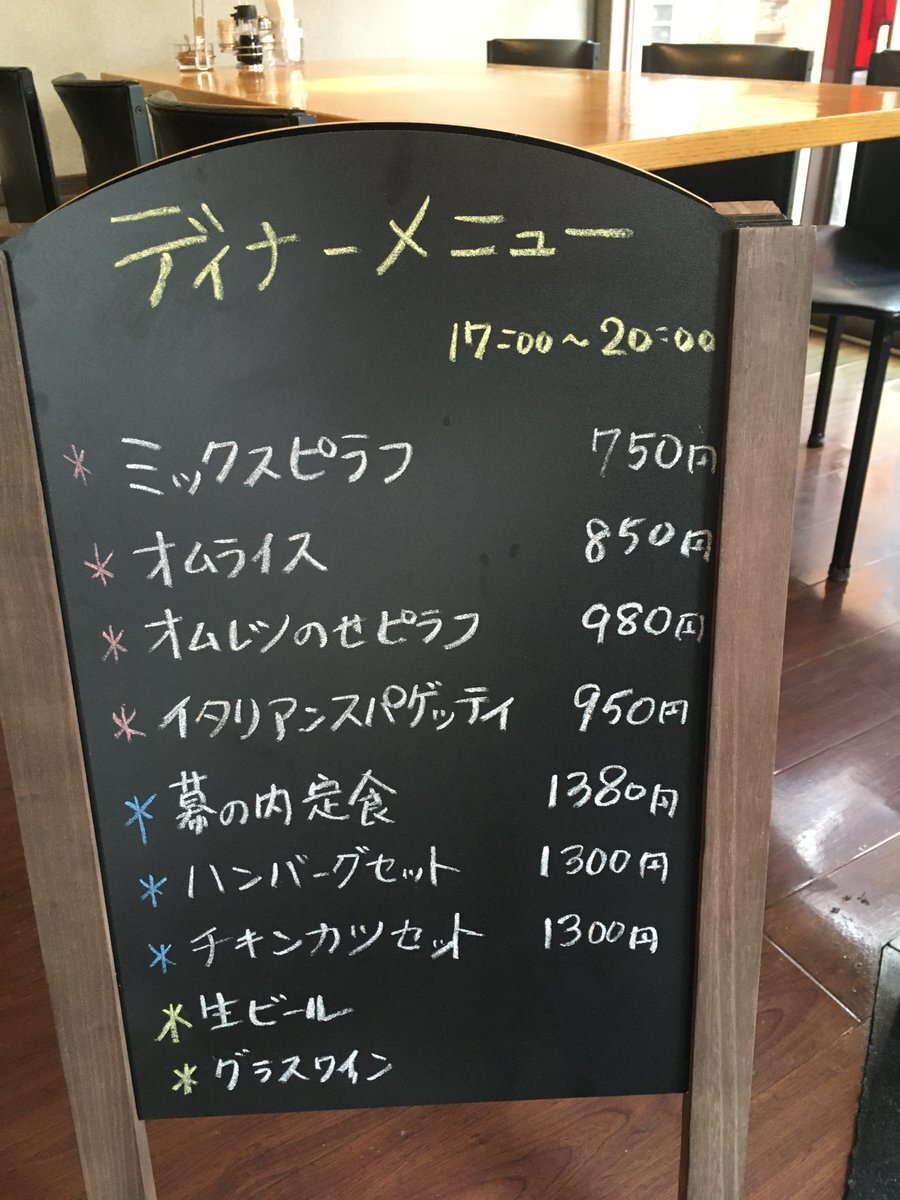 ディナーメニュー
17:00~20:00
* ミックスピラフ 750円
* オムライス 850円
* オムレツのせピラフ 980円
* イタリアンスパゲッティ 950円
* 幕の内定食 1380円
* ハンバーグセット 1300円
* チキンカツセット 1300円
* 生ビール
* グラスワイン